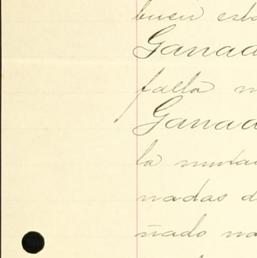 buen est
Ganad
falla m
Ganad
la muta
nadas d
ñado no